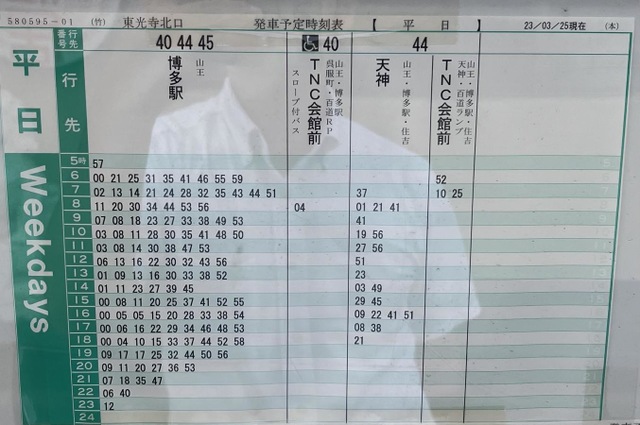 580595-01 (竹) 東光寺北口 発車予定時刻表 【 平 日 】 23/03/25現在 (本)
番号 行先 40 44 45 40 44
平日 行先 博多駅 山王 TNC会館前 スロープ付バス 山王・博多駅・呉服町・百道RP 天神 山王・博多駅・住吉 TNC会館前 山王・博多駅・住吉 天神・百道ランプ
Weekdays
5時 57
6 00 21 25 31 35 41 46 55 59 52
7 02 13 14 21 24 28 32 35 43 44 51 37 10 25
8 11 20 30 34 44 53 56 04 01 21 41
9 07 08 18 23 27 33 38 49 53 41
10 03 08 11 28 30 35 41 48 50 19 56
11 03 08 14 30 38 47 53 27 56
12 06 13 16 22 30 32 43 56 51
13 01 09 13 16 30 33 38 52 23
14 01 11 23 27 39 45 03 49
15 00 08 11 20 25 37 41 52 55 29 45
16 00 05 05 15 20 28 33 38 54 09 22 41 51
17 00 06 16 22 29 34 46 48 53 08 38
18 00 04 10 15 33 37 44 52 58 21
19 09 17 17 25 32 44 50 56
20 09 11 20 27 36 53
21 07 18 35 47
22 06 40
23 12
24